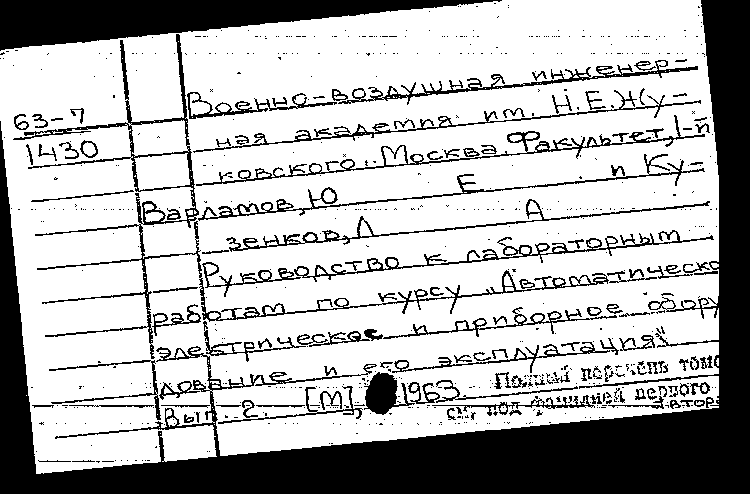 63-7
1430
Военно-воздушная инженер-
ная академия им. Н.Е.Жу-
ковского. Москва. Факультет, 1-й
Варламов, Ю Е и Ку-
зенков, Л А
Руководство к лабораторным
работам по курсу „Автоматическо
электрическое и приборное обору
дование и его эксплуатация“
Вып. 2. [М], 1963.
Полный перечень томо
см. под фамилией первого
автора